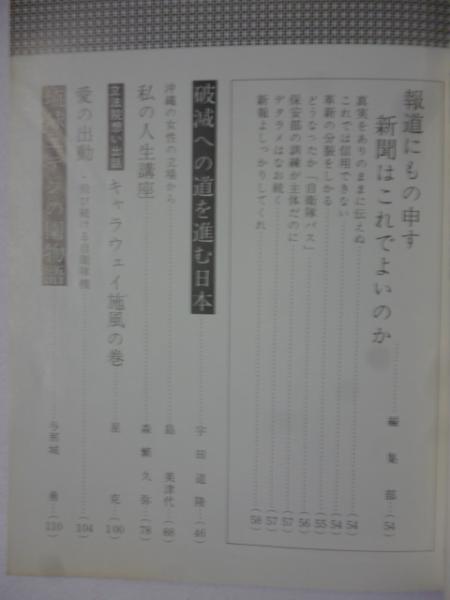 報道にもの申す
新聞はこれでよいのか……編集部…(54)
真実をありのままに伝えぬ……(54)
これでは信用できない……(54)
革新の分裂をしかる……(55)
どうなったか「自衛隊バス」……(56)
保安部の訓練が主体だのに……(57)
デタラメはなお続く……(57)
新報よしっかりしてくれ……(58)
破滅への道を進む日本……宇田道隆…(46)
沖縄の女性の立場から……島美津代…(68)
私の人生講座……森繁久弥…(78)
立法院想い出話 キャラウェイ施風の巻……星克…(100)
愛の出動・飛び続ける自衛隊機……(104)
の国物語……与那城勇…(110)